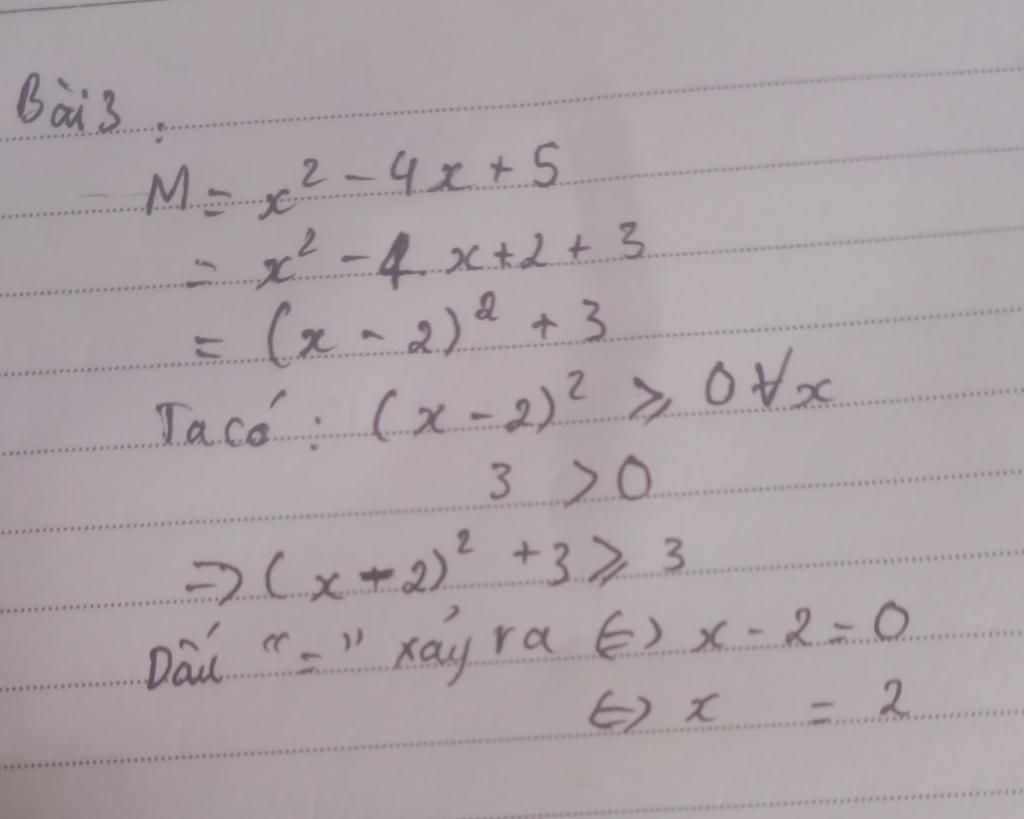 Bài 3 :
M = x² - 4x + 5
= x² - 4x + 2 + 3
= (x - 2)² + 3
Ta có : (x - 2)² ⩾ 0 ∀x
3 > 0
=> (x - 2)² + 3 ⩾ 3
Dấu "=" xảy ra <=> x - 2 = 0
<=> x = 2